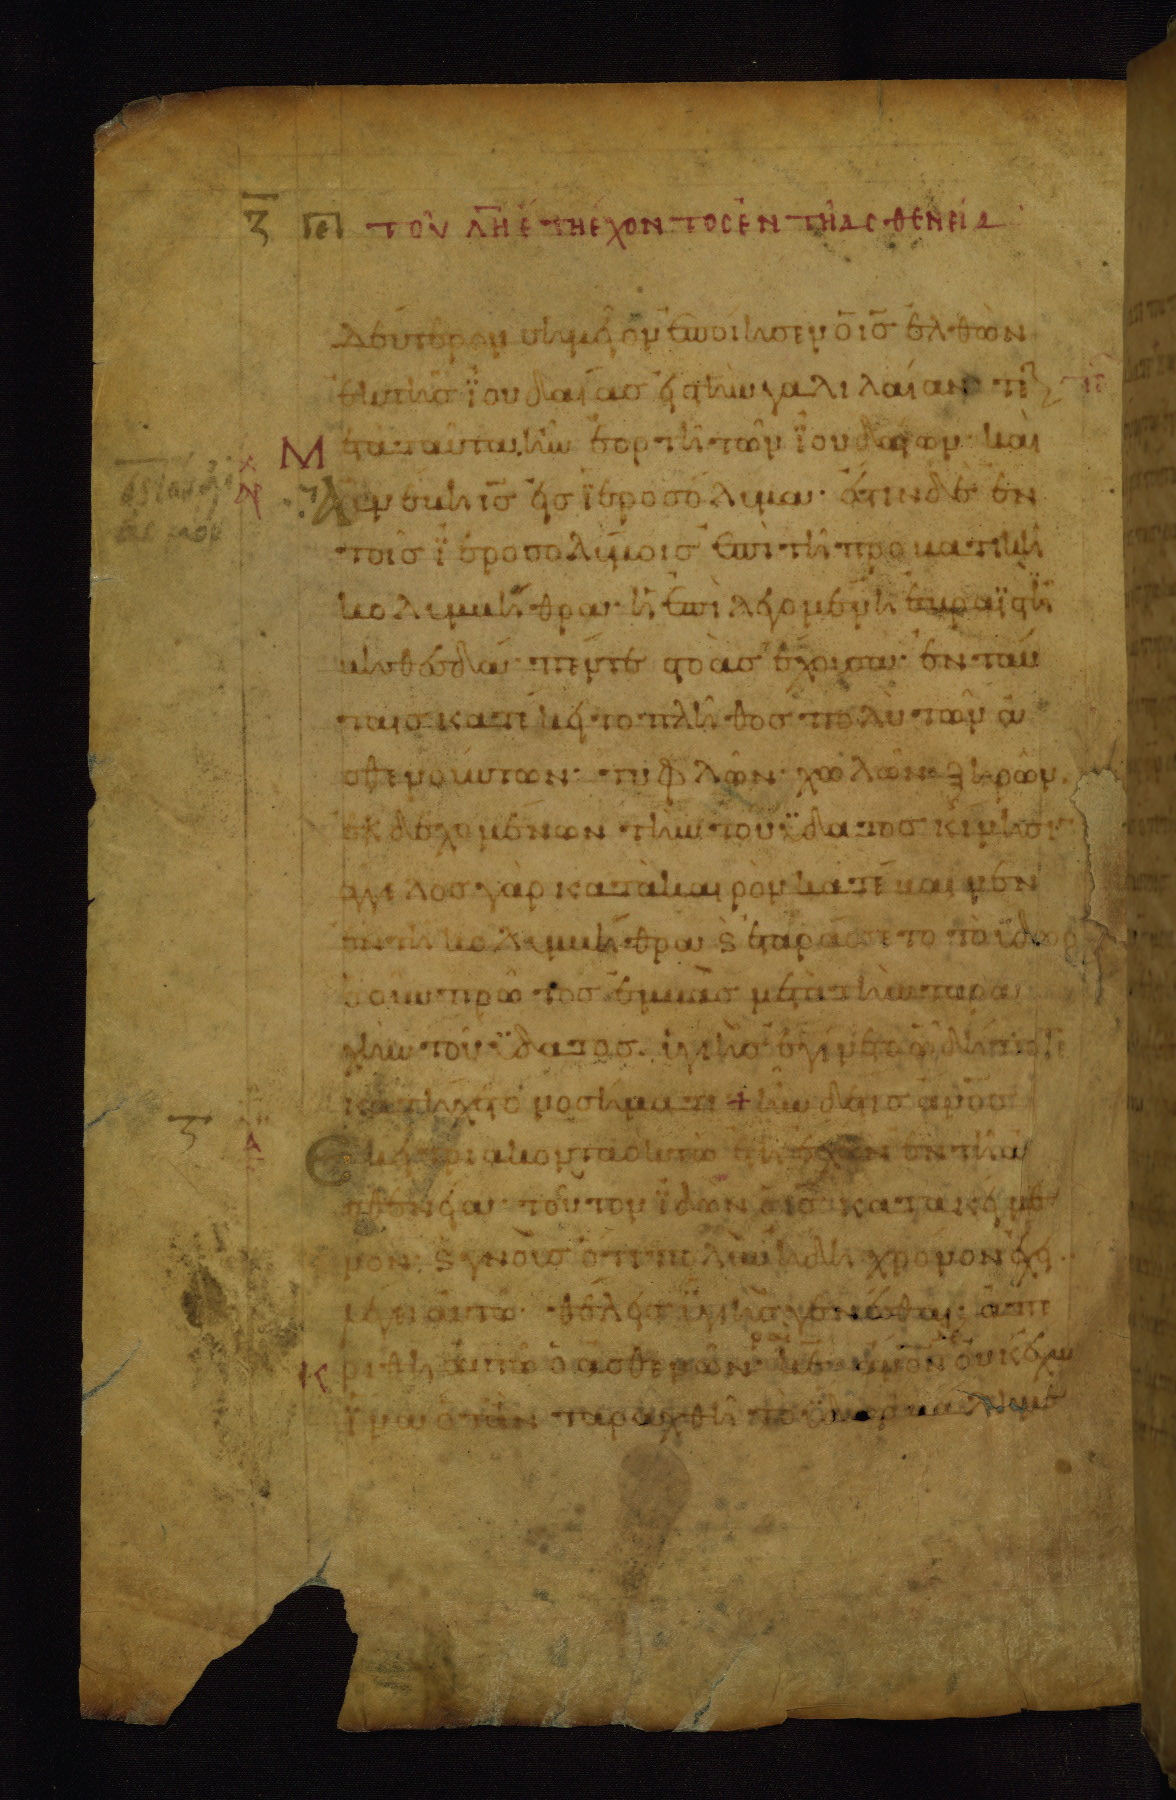 ζ περὶ τοῦ λη ἔτη ἔχοντος ἐν τῆ ἀσθενεία
δεύτερον σημεῖον ἐποίησεν ὁ ισ ἐλθὼν
ἐκ τῆς ϊουδαίας εἰς τὴν γαλιλαίαν τε
Μετὰ ταῦτα ἦν ἑορτὴ τῶν ϊουδαίων καὶ
ἀνέβη ισ εἰς ϊεροσόλυμα· ἔστιν δὲ ἐν
τοῖς ϊεροσολύμοις ἐπὶ τῆ προβατικῆ
κολυμβήθρα· ἡ ἐπιλεγομένη ἑβραϊστὶ
βηθεσδά· πέντε στοὰς ἔχουσα· ἐν ταύ
ταις κατέκειτο πλῆθος πολὺ τῶν ἀ
σθενούντων· τυφλῶν· χωλῶν· ξηρῶν·
ἐκδεχομένων τὴν τοῦ ϋδατος κίνησιν
ἄγγελος γὰρ κατὰ καιρὸν κατέβαινεν
ἐν τῆ κολυμβήθρα ϛ ἐτάρασσε τὸ ϋδωρ
ὁ οὖν πρῶτος ἐμβὰς μετὰ τὴν ταρα
χὴν τοῦ ϋδατος· ὑγιὴς ἐγίνετο ὧ δήποτε
κατείχετο νοσήματι + ἦν δέ τις ανος
ἐκεῖ τριακονταοκτὼ ἔτη ἔχων ἐν τῆ ἀ
σθενεία· τοῦτον ϊδὼν ὁ ισ κατακείμε
νον· ϛ γνοὺς ὅτι πολὺν ἤδη χρόνον ἔχει
λέγει αὐτῶ· θέλεις ὑγιὴς γενέσθαι· ἀπε
κρίθη αὐτῶ ὁ ἀσθενῶν· κε ανον οὐκ ἔχω
ϊνα ὅταν ταραχθῆ τὸ ϋδωρ βάλη με